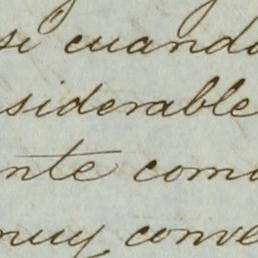 si cuando
siderable
nte como
muy conve